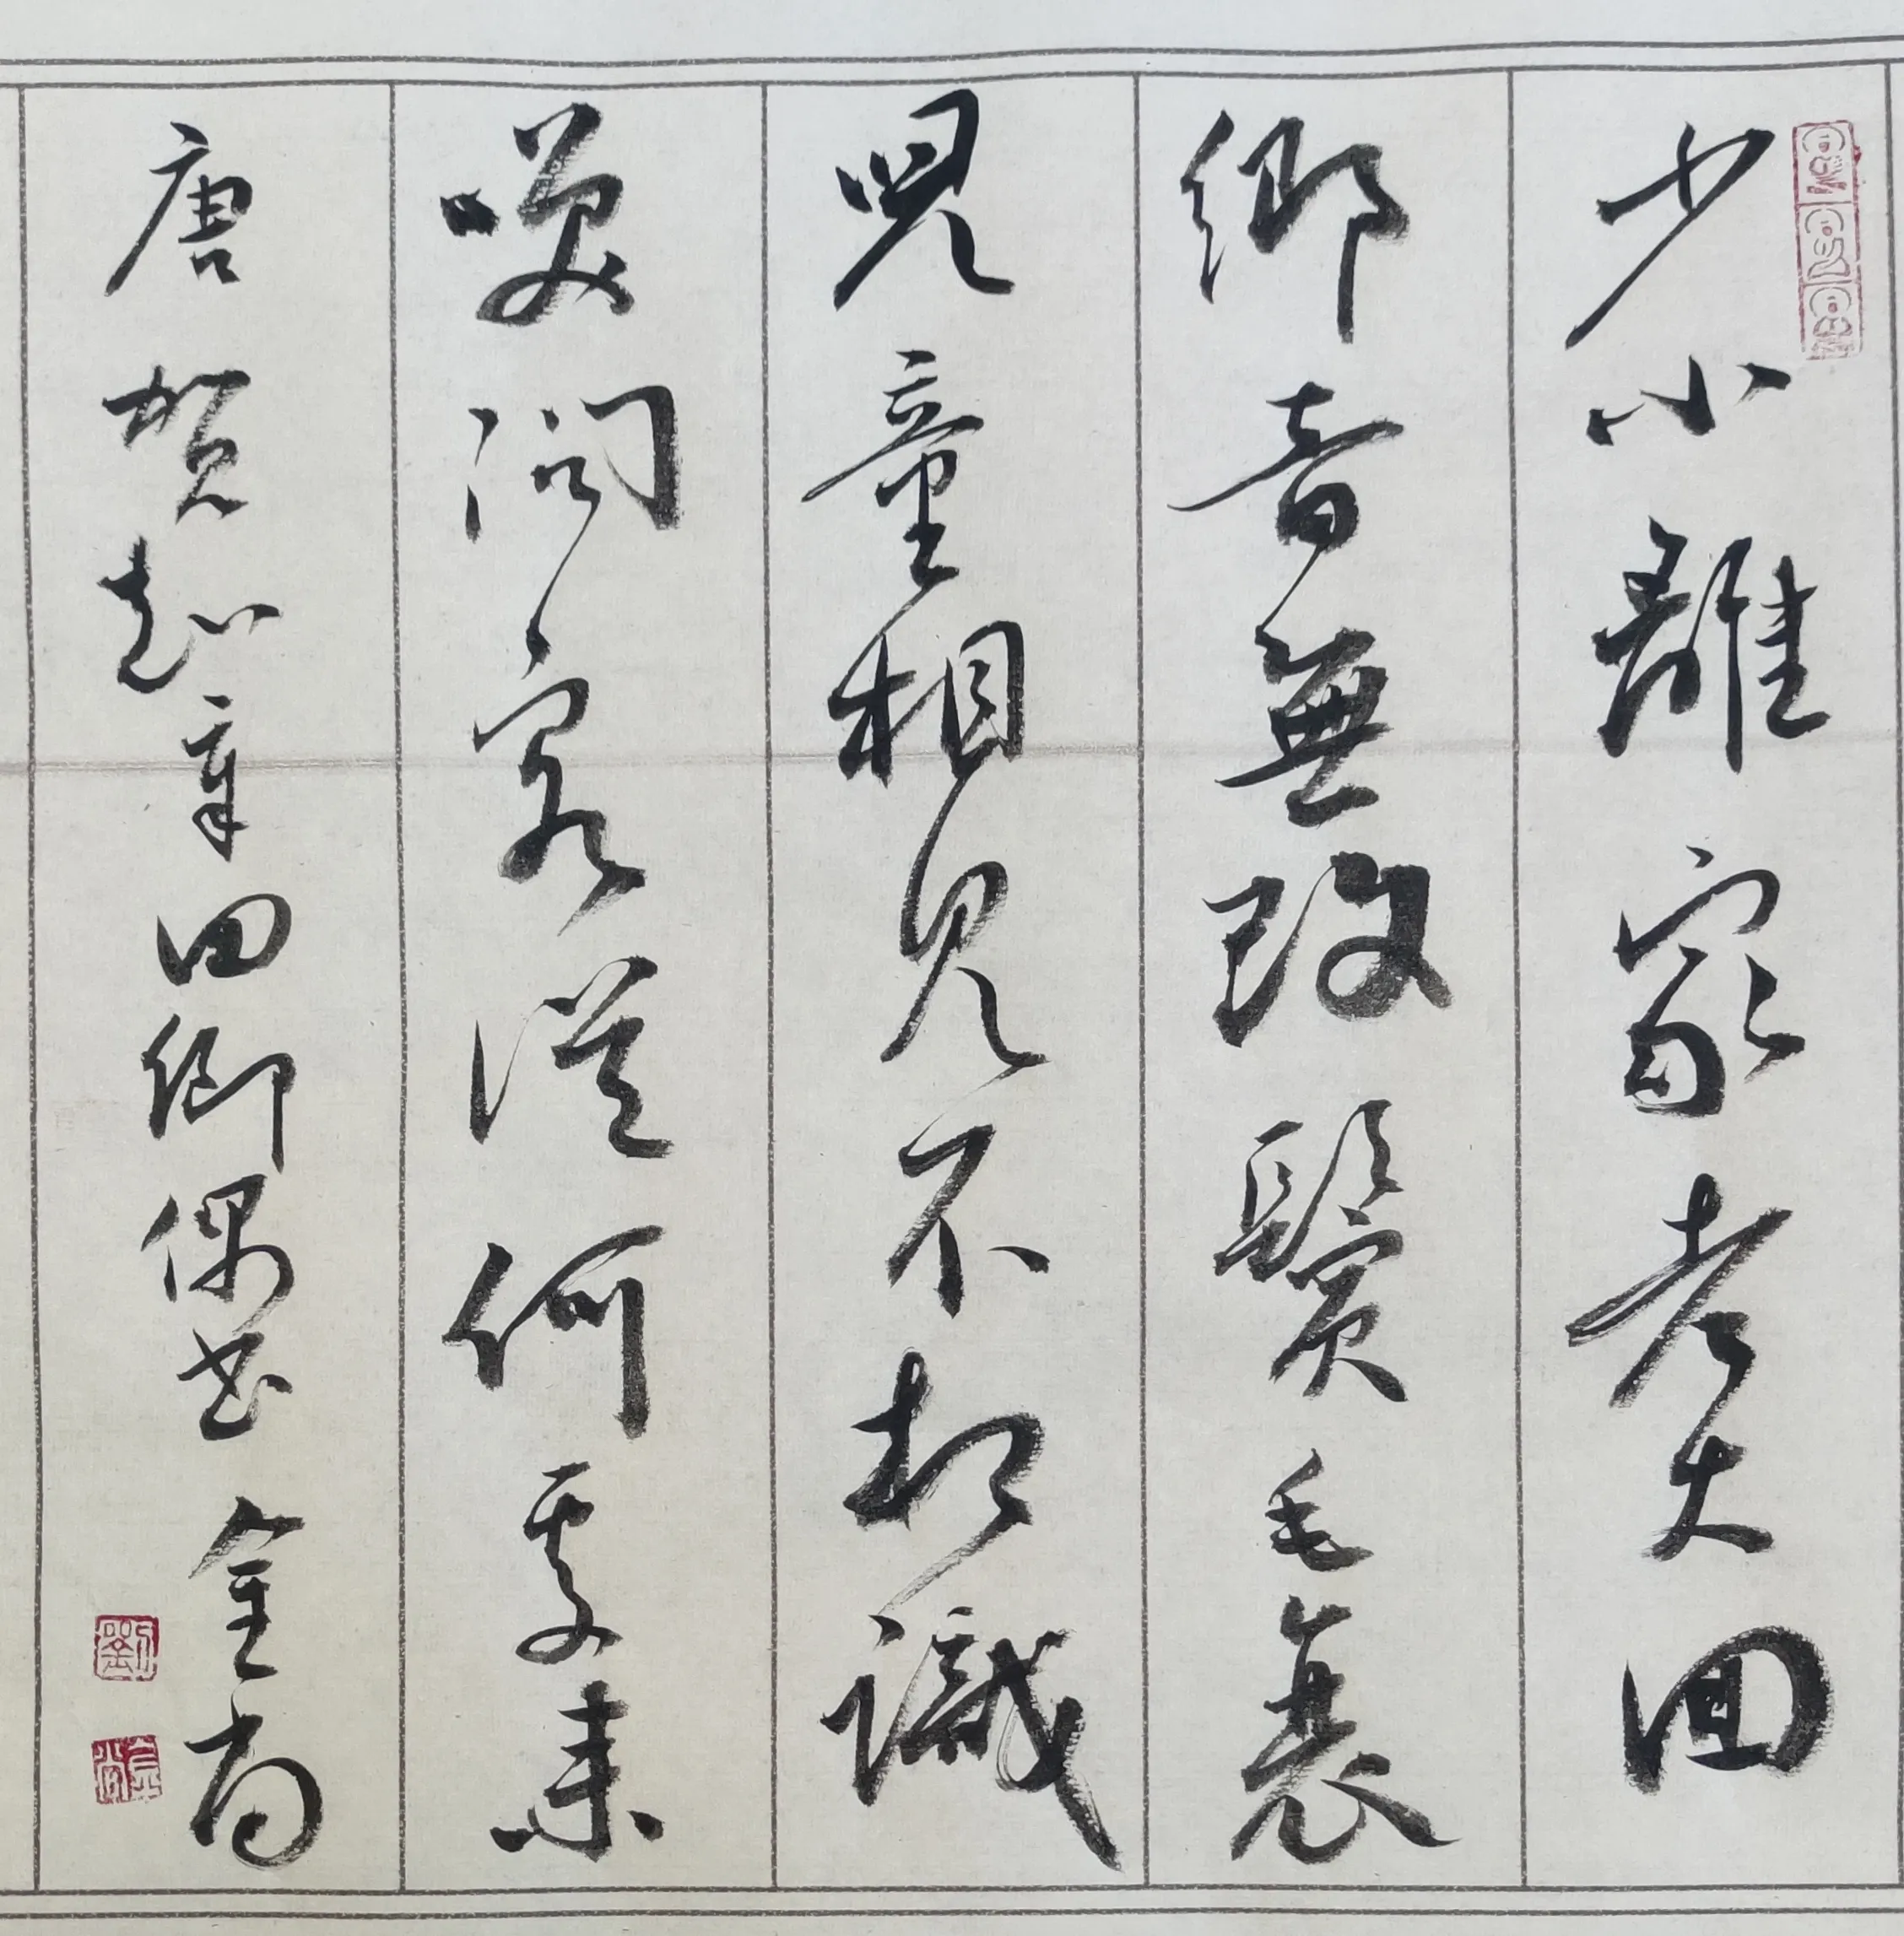 少小離家老大回
鄉音無改鬢毛衰
兒童相見不相識
笑問客從何處来
唐賀知章回鄉偶书 金尚
劉